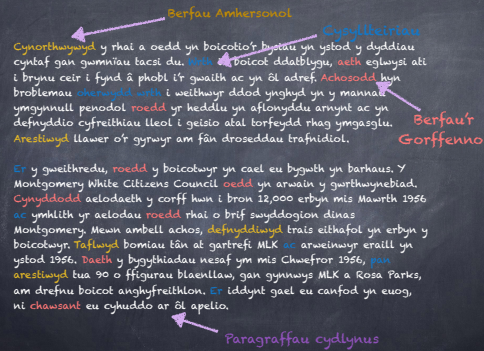 Berfau Amhersonol
Cysyllteiriau
Cynorthwywyd y rhai a oedd yn boicotio'r bysiau yn ystod y dyddiau
cyntaf gan gwmnïau tacsi du. boicot ddatblygu, aeth eglwysi ati
i brynu ceir i fynd â phobl i'r gwaith ac yn ôl adref. Achosodd hyn
broblemau oherwydd wrth i weithwyr ddod ynghyd yn y mannau
ymgynnull penodol roedd yr heddlu yn aflonyddu arnynt ac yn
defnyddio cyfreithiau lleol i geisio atal torfeydd rhag ymgasglu.
Arestiwyd llawer o'r gyrwyr am fân droseddau trafnidiol.
Berfau'r
Gorffenno
Er y gweithredu, roedd y boicotwyr yn cael eu bygwth yn barhaus. Y
Montgomery White Citizens Council oedd yn arwain y gwrthwynebiad.
Cynyddodd aelodaeth y corff hwn i bron 12,000 erbyn mis Mawrth 1956
ac ymhlith yr aelodau roedd rhai o brif swyddogion dinas
Montgomery. Mewn ambell achos, defnyddiwyd trais eithafol yn erbyn y
boicotwyr. Taflwyd bomiau tân at gartrefi MLK ac arweinwyr eraill yn
ystod 1956. Daeth y bygythiadau nesaf ym mis Chwefror 1956, pan
arestiwyd tua 90 o ffigurau blaenllaw, gan gynnwys MLK a Rosa Parks,
am drefnu boicot anghyfreithlon. Er iddynt gael eu canfod yn euog,
ni chawsant eu cyhuddo ar ôl apelio.
Paragraffau cydlynus